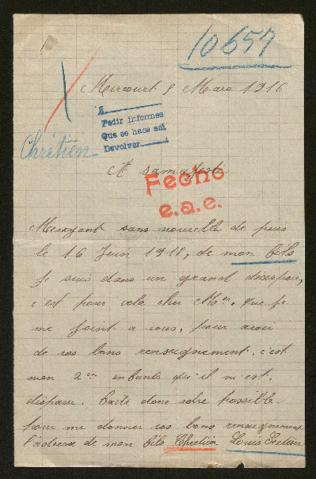 10657
Mirecourt 9 Mars 1916
A
Pedir informes
Que se hace así
Devolver
Chrétien
A sa majesté
Fecho
e.a.e.
Meseyant sans nouvelle de puis
le 16 Juin 1915, de mon fils
Je suis dans un grand desespoir,
c'est pour cela cher Mr, que je
me joint a vous, pour avoir
de vos bons renseignement, c'est
mon 2em enfants qu'il m'est
disparu. Faite dans votre possible
pour me donner vos bons renseignements
l'adresse de mon fils Chrétien Louis